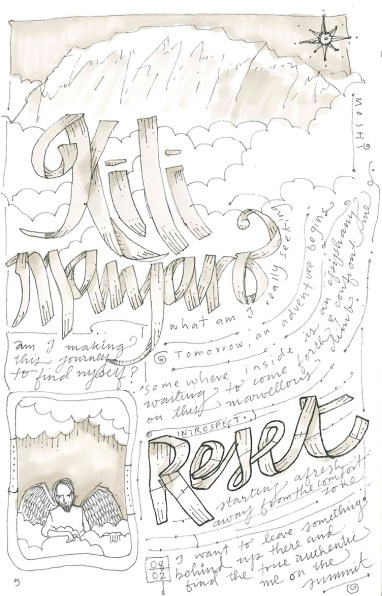 MOSHI
Kili
manjaro
what am I really seeking
Tomorrow, an adventure begins
am I making
this journey
to find myself?
some where inside, is an epiphany
waiting to come forth & confront me
on this marvellous climb
INTROSPECT
Reset
starting afresh
away from the comfort
zone
08
02
I want to leave something
behind up there and
find the true authentic
me on the
summit
5